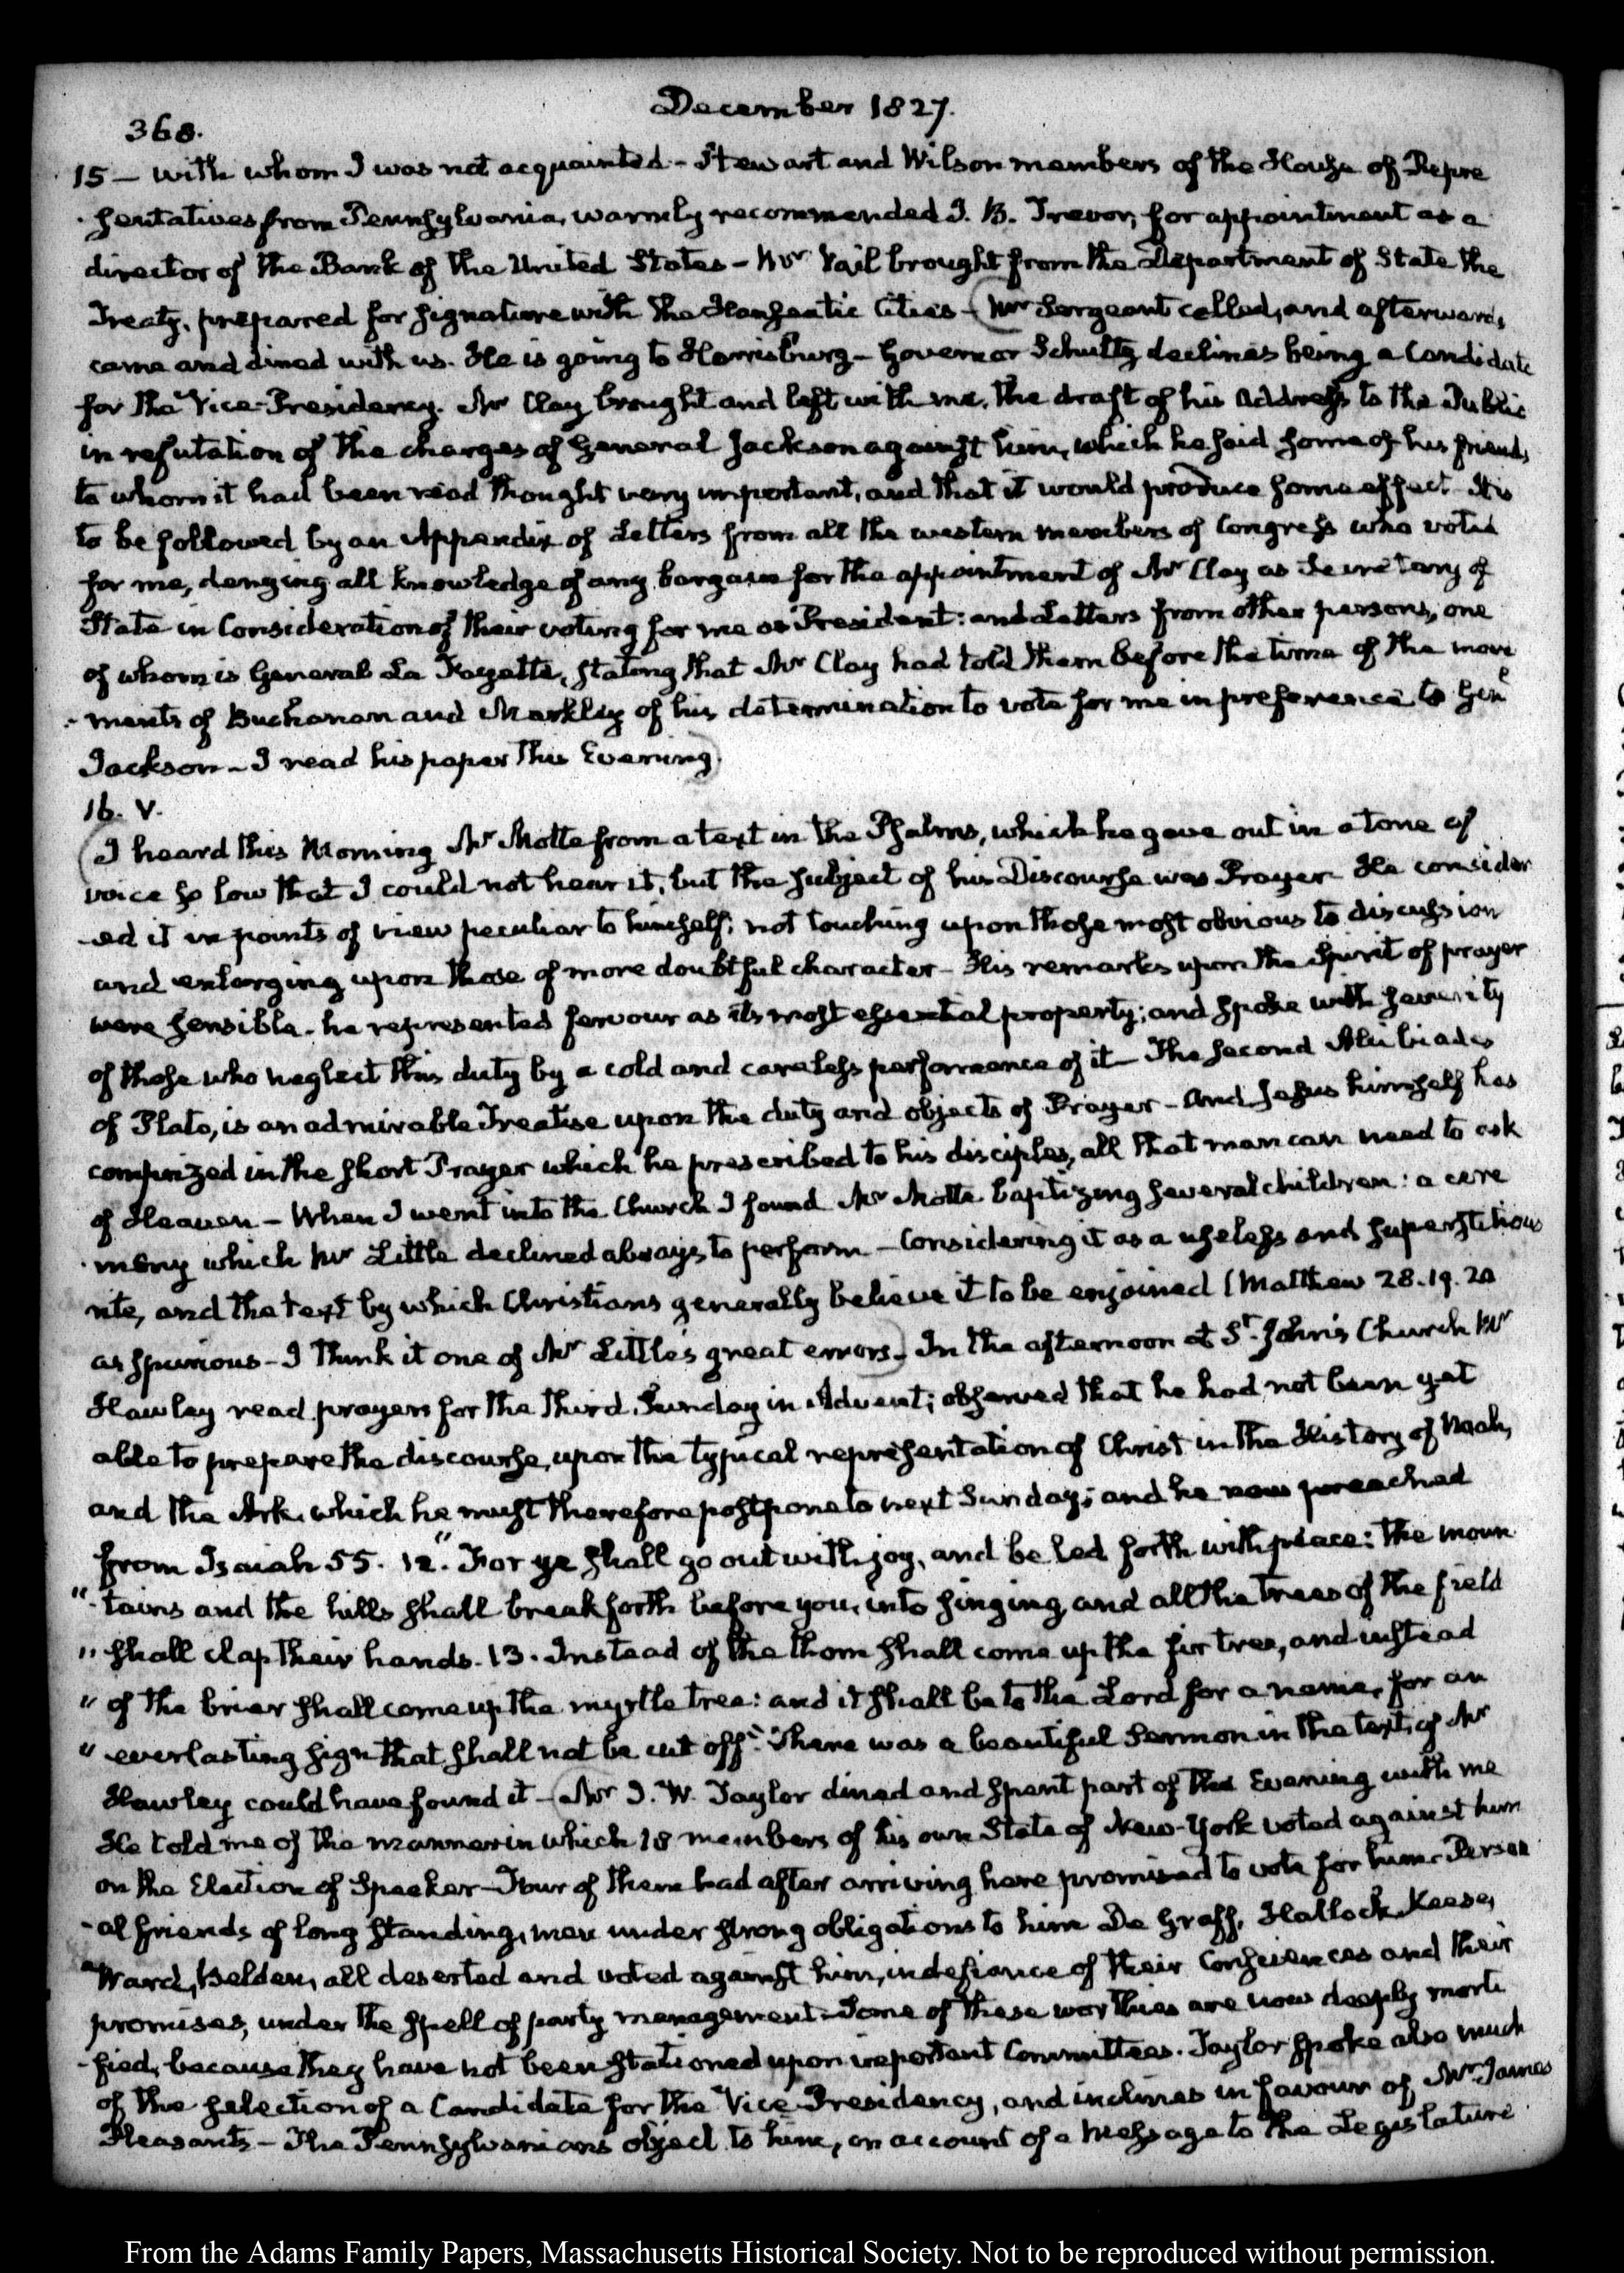 December 1827.
368.
15 — with whom I was not acquainted – Stewart and Wilson members of the House of Repre
-sentatives from Pennsylvania, warmly recommended J. B. Trevor, for appointment as a
director of the Bank of the United States – Mr Vail brought from the Department of State the
Treaty, prepared for signature with the Hanseatic Cities – (Mr Sergeant called, and afterwards
came and dined with us. He is going to Harrisburg – Governor Schultz declines being a Candidate
for the Vice-Presidency. Mr Clay brought and left with me, the draft of his Address to the Public
in refutation of the charges of General Jackson against him, which he said some of his friends
to whom it had been read thought very important, and that it would produce some effect. It is
to be followed by an Appendix of Letters from all the western members of Congress who voted
for me, denying all knowledge of any bargain for the appointment of Mr Clay as Secretary of
State in Consideration of their voting for me as President: and Letters from other persons, one
of whom is General La Fayette, stating that Mr Clay had told them before the time of the move
-ments of Buchanan and Markley of his determination to vote for me in preference to Genl
Jackson – I read his paper this Evening)
16. V.
(I heard this Morning Mr Motte from a text in the Psalms, which he gave out in a tone of
voice so low that I could not hear it, but the subject of his Discourse was Prayer. He consider
-ed it in points of view peculiar to himself; not touching upon those most obvious to discussion
and enlarging upon those of more doubtful character – His remarks upon the Spirit of prayer
were sensible – he represented fervour as its most essential property; and spoke with severity
of those who neglect this duty by a cold and careless performance of it – The second Alcibiades
of Plato, is an admirable Treatise upon the duty and objects of Prayer – And Jesus himself has
comprized in the short Prayer which he prescribed to his disciples, all that man can need to ask
of Heaven – When I went into the Church I found Mr Motte baptizing several children: a cere
-mony which Mr Little declined always to perform – Considering it as a useless and superstitious
rite, and the text by which Christians generally believe it to be enjoined (Matthew 28.19.20
as spurious – I think it one of Mr Little's great errors.) In the afternoon at St. John's Church Mr
Hawley read prayers for the third Sunday in Advent; observed that he had not been yet
able to prepare the discourse, upon the typical representation of Christ in the History of Noah,
and the Ark, which he must therefore postpone to next Sunday; and he now preached
from Isaiah 55. 12. "For ye shall go out with joy, and be led forth with peace: the moun
"-tains and the hills shall break forth before you, into singing, and all the trees of the field
"shall clap their hands. 13. Instead of the thorn shall come up the fir tree, and instead
"of the briar shall come up the myrtle tree: and it shall be to the Lord for a name, for an
"everlasting sign that shall not be cut off." There was a beautiful Sermon in the text, if Mr
Hawley could have found it – (Mr J. W. Taylor dined and spent part of the Evening with me
He told me of the manner in which 18 members of his own State of New-York voted against him
on the Election of Speaker – Four of them had after arriving here promised to vote for him – Person
-al friends of long standing, men under strong obligations to him De Graff, Hallock, Keese,
Ward, Belden, all deserted and voted against him, in defiance of their Consciences and their
promises, under the spell of party management. Some of these worthies are now deeply morti
-fied, because they have not been stationed upon important Committees. Taylor spoke also much
of the selection of a Candidate for the Vice-Presidency, and inclines in favour of Mr James
Pleasants – The Pennsylvanians object to him, on account of a Message to the Legislature
From the Adams Family Papers, Massachusetts Historical Society. Not to be reproduced without permission.